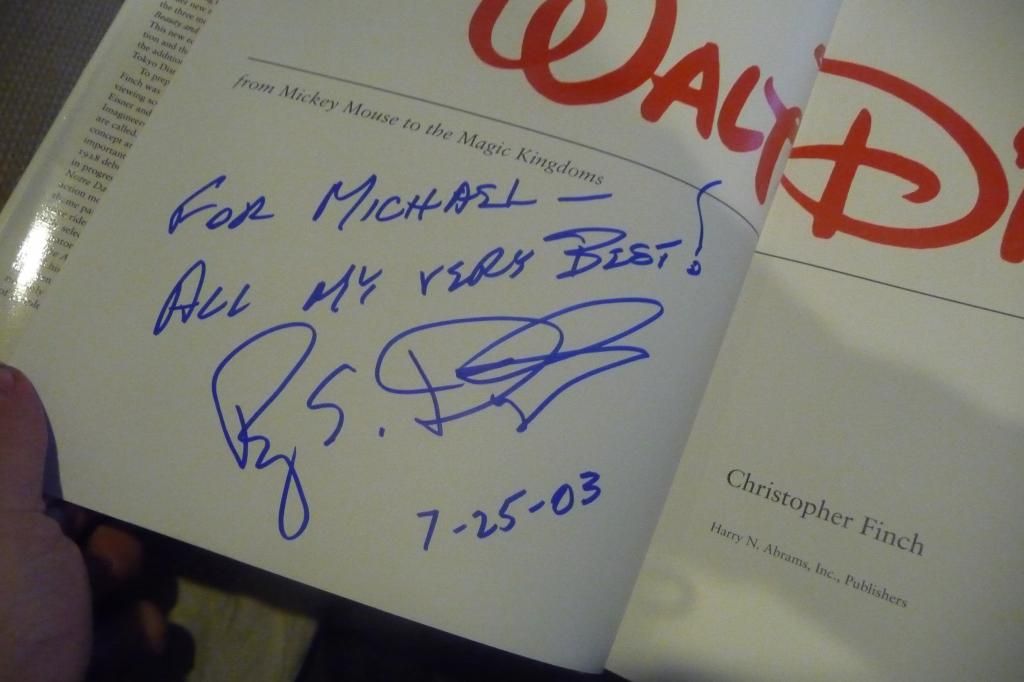 er new
the three m
Beauty and
This new e
tion and th
the additio
Tokyo Dis
To prep
Finch was
viewing so
Eisner and
Imagineer
are called,
concept ar
important
1928 deb
in progres
Notre Da
WALT DI
from Mickey Mouse to the Magic Kingdoms
FOR MICHAEL —
ALL MY VERY BEST!
Roy E. Disney
7-25-03
Christopher Finch
Harry N. Abrams, Inc., Publishers